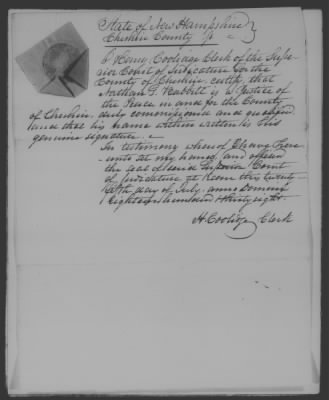 State of New Hampshire
Cheshire County ss
I Henry Coolidge Clerk of the Supe-
rior Court of Judicature for the
County of Cheshire, certify that
Nathan G. Babbitt is a Justice of
the Peace in and for the County
of Cheshire, duly commissioned and qualified
and that his name within written is his
genuine signature.
In testimony whereof I have here
unto set my hand and affixed
the seal of said Superior Court
of Judicature at Keene this twenty
day of July, anno Domini
Eighteen hundred & thirty eight.
H. Coolidge Clerk